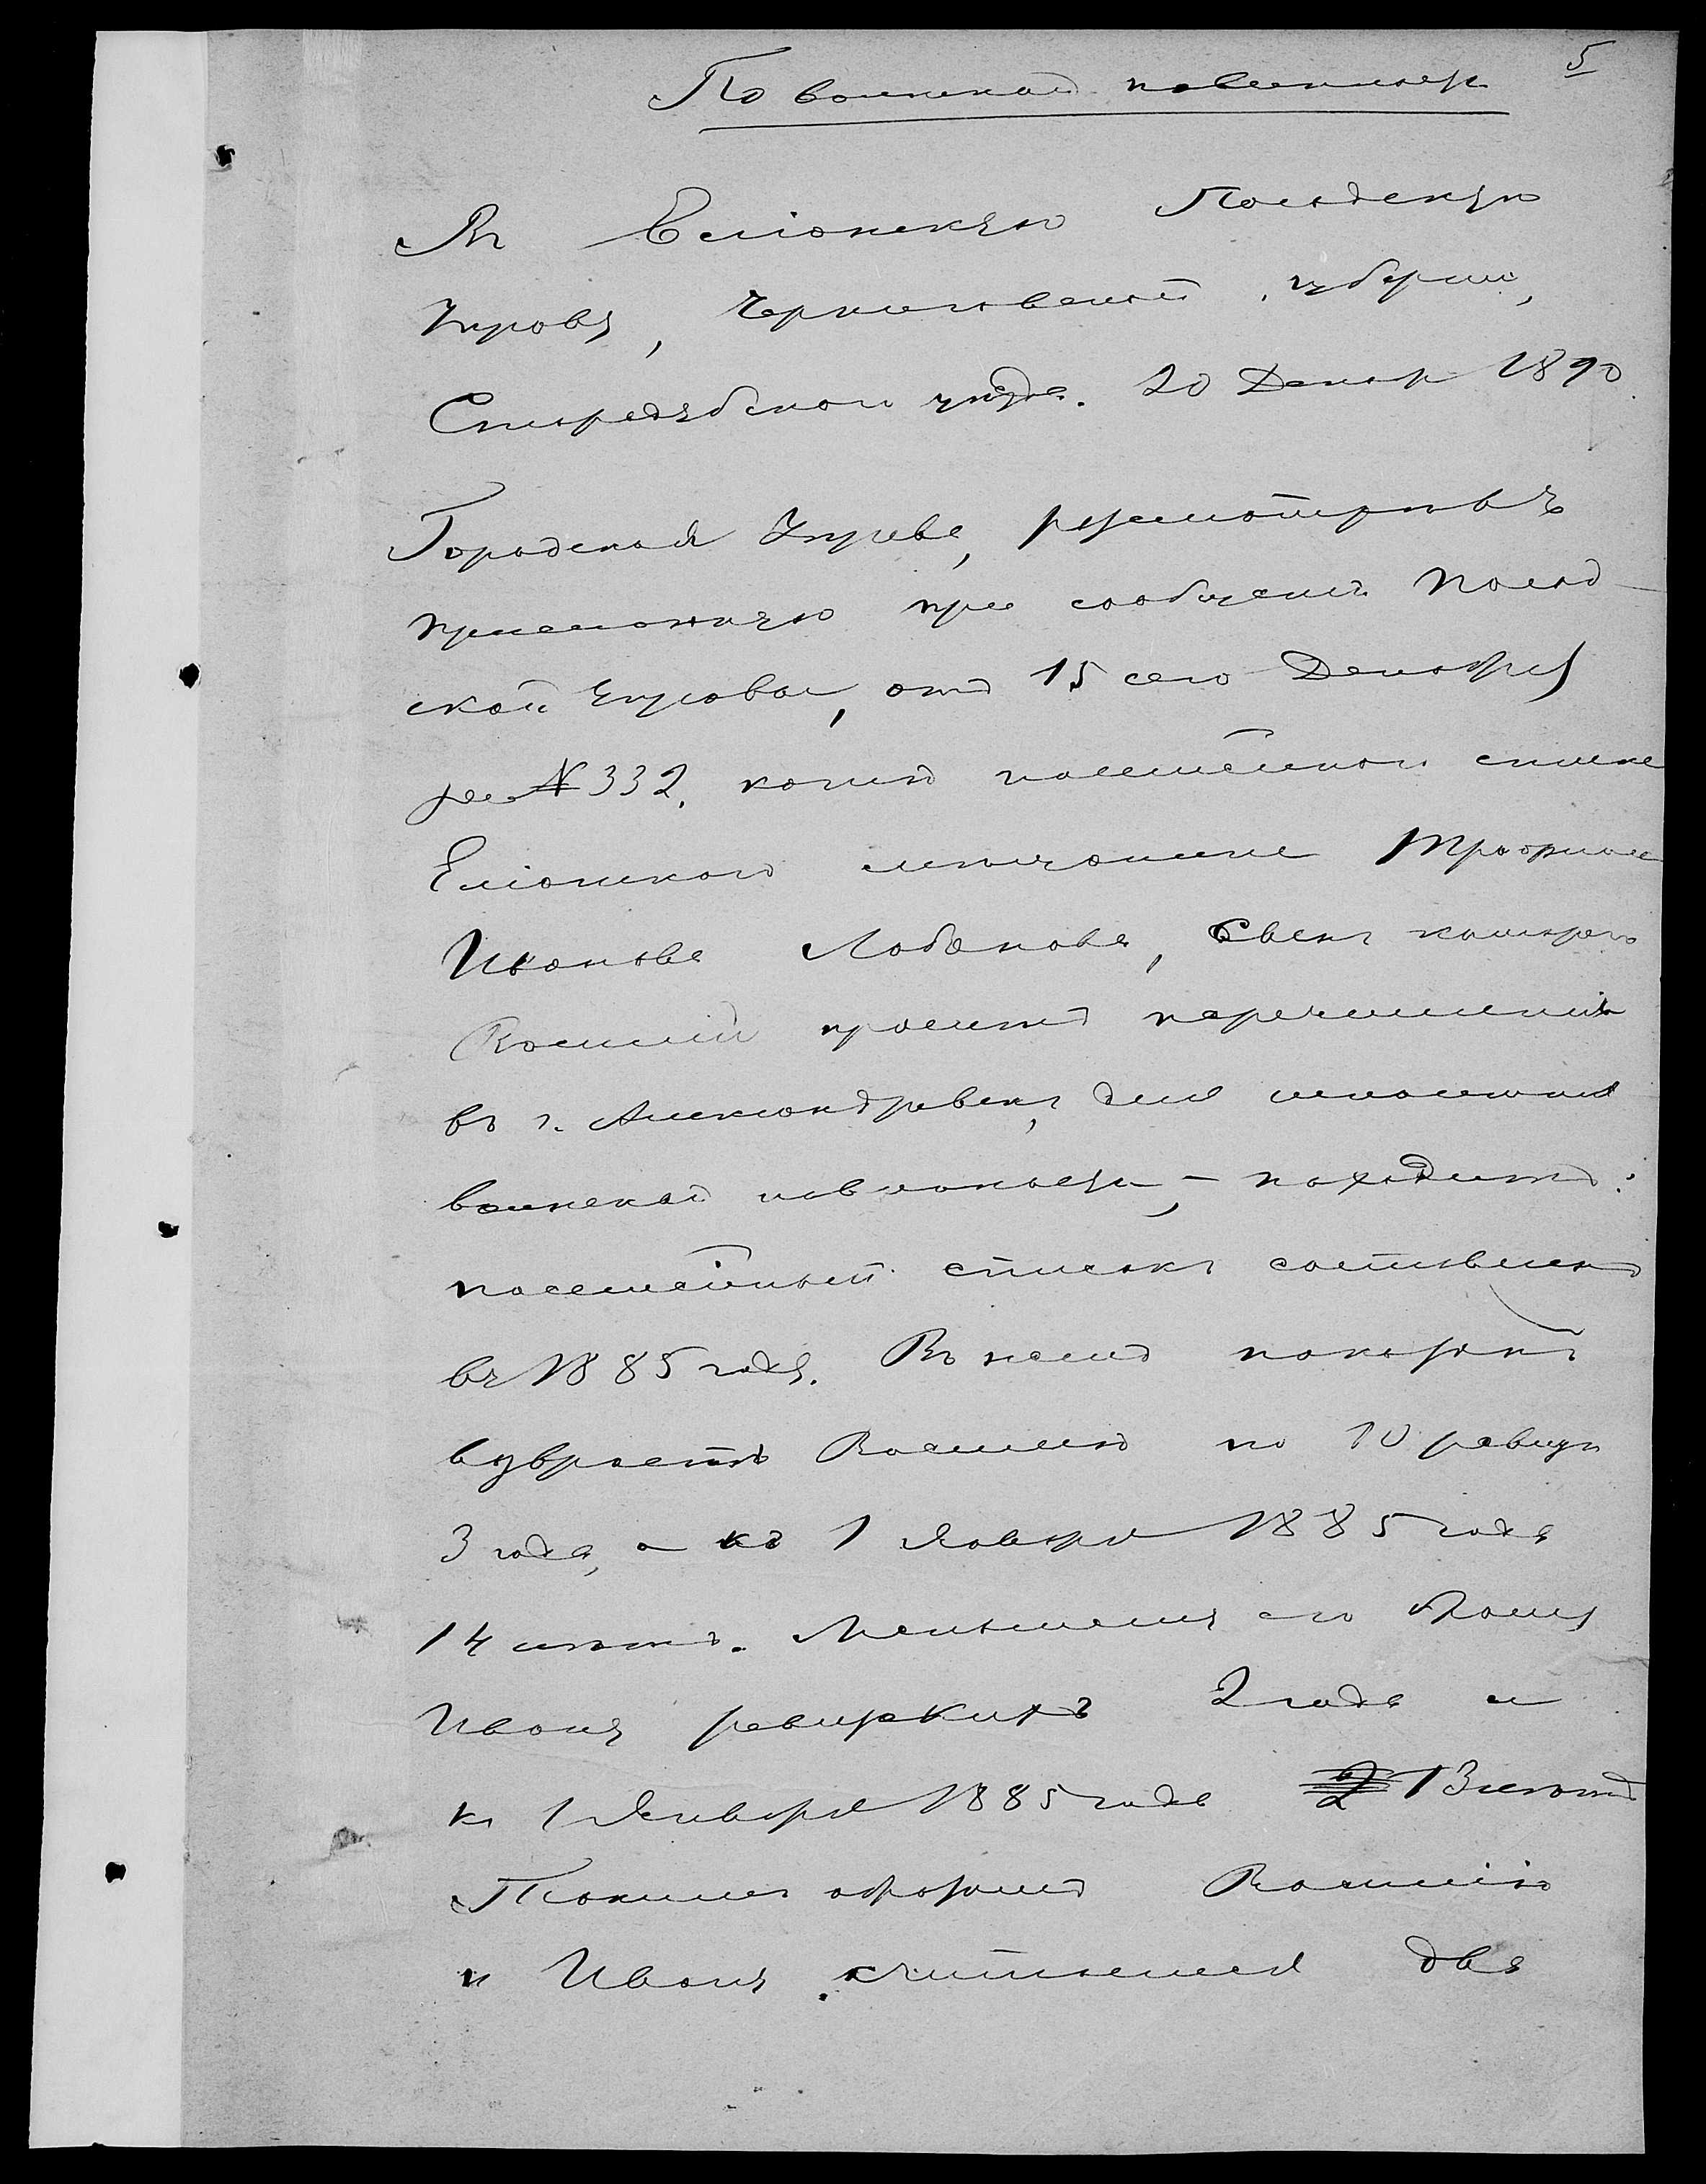 5
По воинской повинности
Въ Еліонскую Посадскую
Управу, Черниговской губерніи,
Стародубскаго уѣзда. 20 Декабр 1890
Городская Управа, разсмотрѣвъ
приложенную при сообщеніи Посад-
ской Управы, отъ 15 сего Декабря
за № 332, копію посемейнаго списка
Еліонскаго мѣщанина Трофима
Иванова Лобанова, сынъ котораго
Василій проситъ перечисленія
въ г. Александровскъ, для исполненія
воинской повинности, – находитъ:
посемейный списокъ составленъ
въ 1885 году. Въ немъ показанъ
возрастъ Василія по 10 ревизіи
3 года, а къ 1 Января 1885 года
14 лѣтъ. Меньшему его брату
Ивану ревизскихъ 2 года и
къ 1 Января 1885 года 13 лѣтъ
Такимъ образомъ Василію
и Ивану считается два